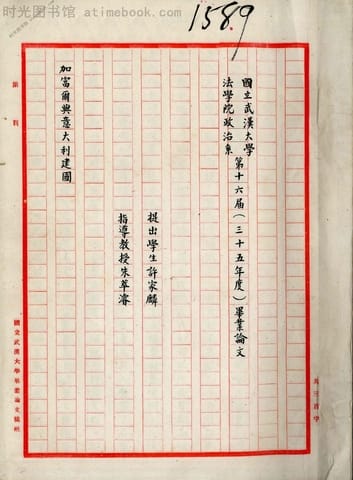 时光图书馆 atimebook.com
1589
國立武漢大學
法學院政治系
第十六屆(三十五年度)畢業論文
加富爾與意大利建國
提出學生許家麟
指導教授朱萃濬
第 頁
國立武漢大學畢業論文稿紙